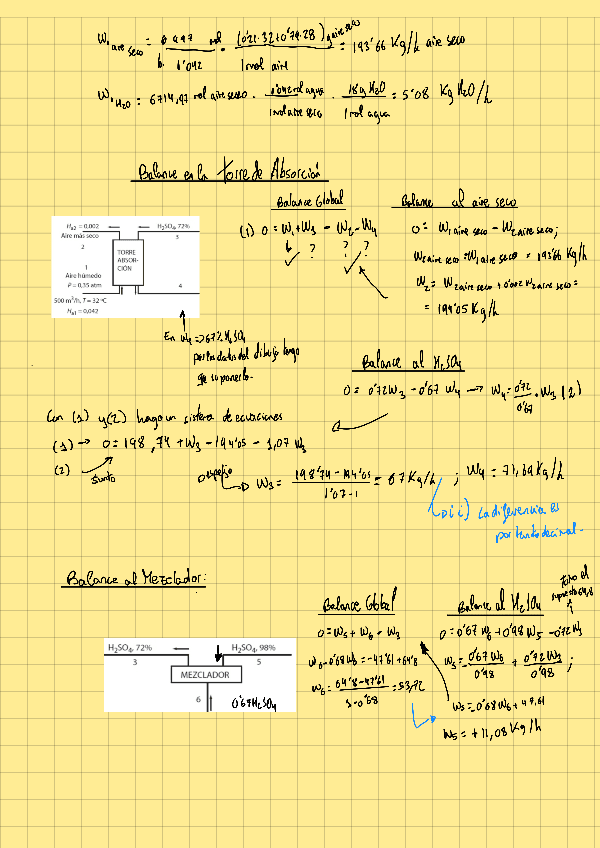 W₁ aire seco = 6'997 mol / 1'042 · (0'21·32+0'79·28) g aire seco / 1 mol aire = 193'66 Kg/h aire seco
W₁ H₂O = 6714,97 mol aire seco · 0'042 mol agua / 1 mol aire seco · 18g H₂O / 1 mol agua = 5'08 Kg H₂O/h
Balance en la torre de Absorción
Balance Global
(1) 0 = W₁ + W₃ - W₂ - W₄
? ? ?
Balance al aire seco
0 = W₁ aire seco - W₂ aire seco;
W₂ aire seco = W₁ aire seco = 193'66 Kg/h
W₂ = W₂ aire seco + 0'002 W₂ aire seco =
= 194'05 Kg/h
H_A2 = 0,002
Aire más seco
2
H₂SO₄, 72%
3
TORRE
ABSOR-
CIÓN
1
Aire húmedo
P = 0,35 atm
4
500 m³/h, T = 32 ºC
H_A1 = 0,042
En W₄ => 67% H₂SO₄
por los datos del dibujo tengo
que suponerlo.
Balance al H₂SO₄
0 = 0'72W₃ - 0'67 W₄ → W₄ = 0'72/0'67 · W₃ (2)
Con (1) y (2) hago un sistema de ecuaciones
(1) → 0 = 198,74 + W₃ - 194'05 - 1,07 W₃
(2) Junto
Despejo
W₃ = 198'74 - 194'05 / 1'07 - 1 = 67 Kg/h ; W₄ = 71,69 Kg/h
(la diferencia es
por tanto decimal.
Balance al Mezclador:
H₂SO₄, 72%
3
H₂SO₄, 98%
5
MEZCLADOR
6
0'67 H₂SO₄
Balance Global
0 = W₅ + W₆ - W₃
W₆ - 0'68 W₆ = -47'61 + 64'8
W₆ = 64'8 - 47'61 / 1 - 0'68 = 53,72
Balance al H₂SO₄
Tomo el
supuesto 64,8
0 = 0'67 W₆ + 0'98 W₅ - 0'72 W₃
W₅ = 0'67 W₆ / 0'98 + 0'72 W₃ / 0'98 ;
W₅ = 0'68 W₆ + 47,61
W₅ = + 11,08 Kg/h